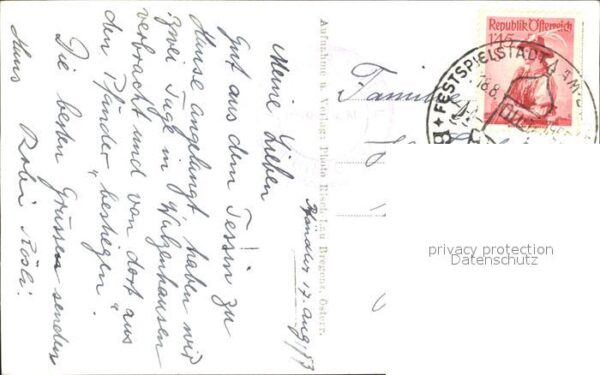 Pfänder 17. Aug. 53
Meine Lieben
Gut aus dem Tessin zu
Hause angelangt, haben wir
zwei Tage in Walzenhausen
verbracht und von dort aus
den "Pfänder" bestiegen.
Die besten Grüssen senden
Hans Robi Rösli.
Aufnahme u. Verlag: Photo Risch-Lau Bregenz, Österr.
Familie
Republik Österreich
1'45
FESTSPIELSTADT
18.8.
privacy protection
Datenschutz